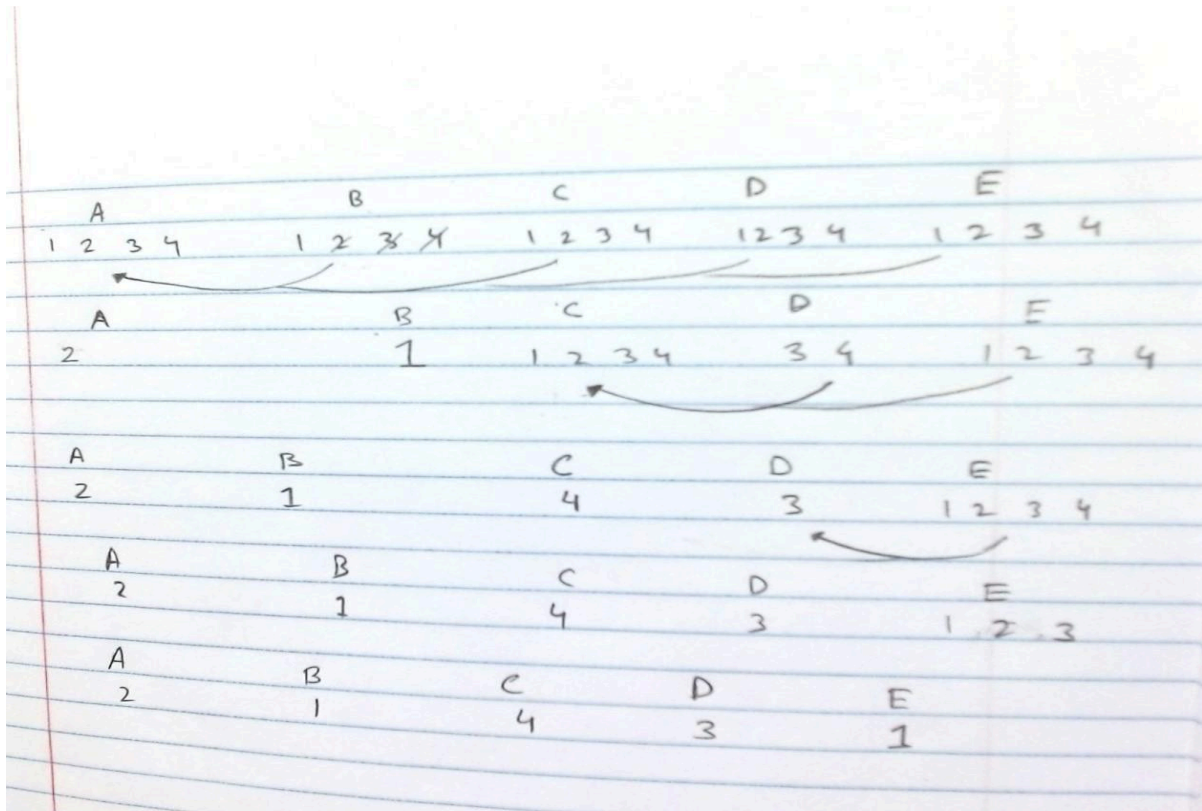 A B C D E
1 2 3 4 1 2 3 4 1 2 3 4 1 2 3 4 1 2 3 4
A B C D E
2 1 1 2 3 4 3 4 1 2 3 4
A B C D E
2 1 4 3 1 2 3 4
A B C D E
2 1 4 3 1 2 3
A B C D E
2 1 4 3 1